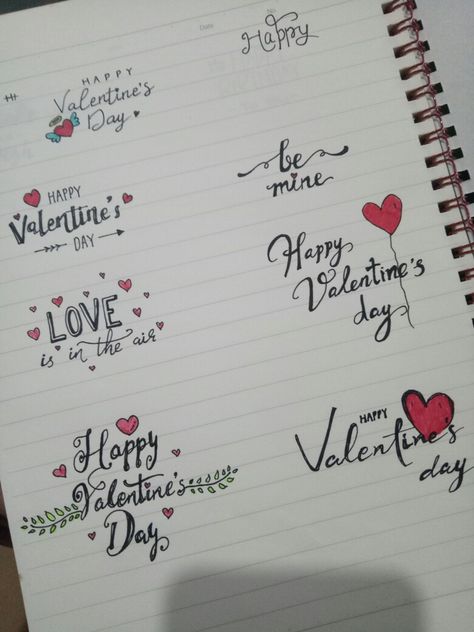 Date
No.
HI
HAPPY
Valentine's
Day
Happy
HAPPY
Valentine's
DAY
be
mine
LOVE
is in the air
Happy
Valentine's
day
Happy
Valentine's
Day
HAPPY
Valentine's
day